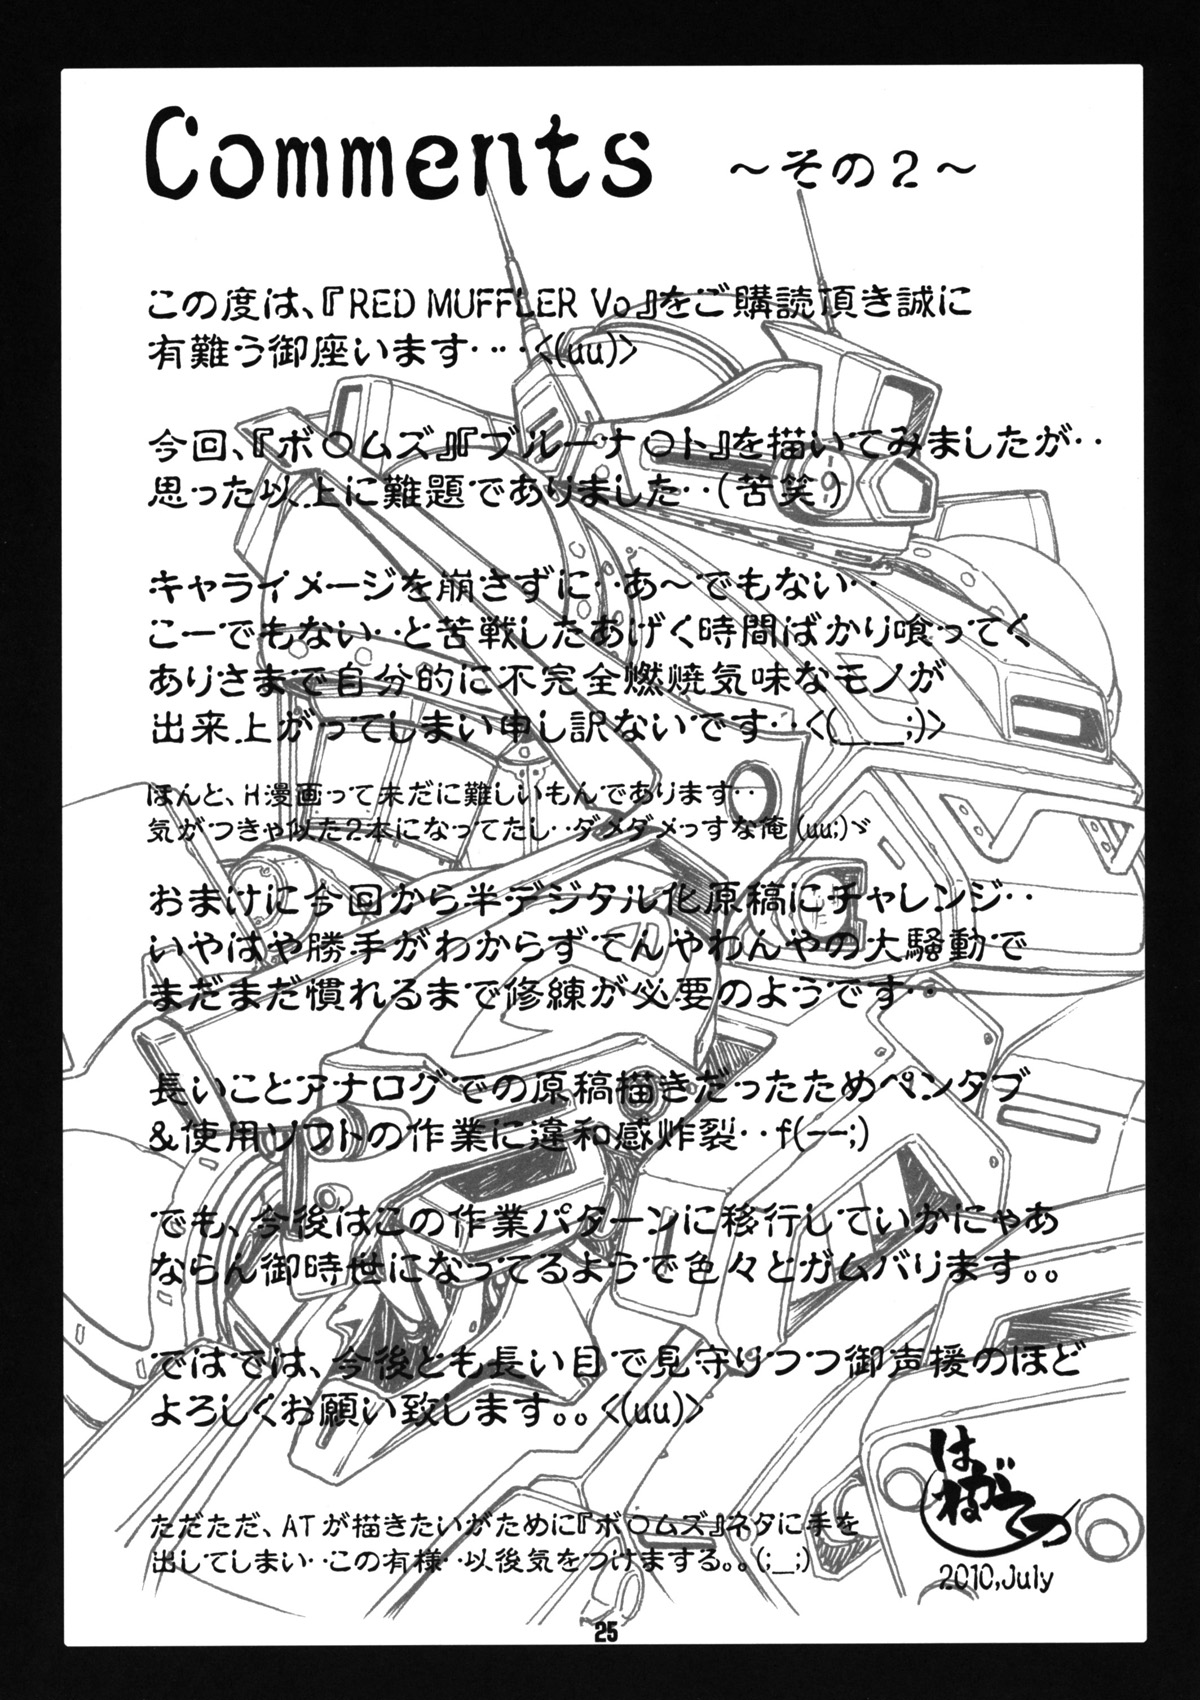 Comments ～その2～
この度は、『RED MUFFLER Vo』をご購読頂き誠に
有難う御座います‥‥<(uu)>
今回、『ボ〇ムズ』『ブルーナ〇ト』を描いてみましたが‥
思った以上に難題でありました‥(苦笑)
キャライメージを崩さずに‥あ～でもない‥
こーでもない‥と苦戦したあげく時間ばかり喰ってく
ありさまで自分的に不完全燃焼気味なモノが
出来上がってしまい申し訳ないです‥<(__;)>
ほんと、H漫画って未だに難しいもんであります‥
気がつきゃ似た2本になってたし‥ダメダメっすな俺(uu;)ゞ
おまけに今回から半デジタル化原稿にチャレンジ‥
いやはや勝手がわからずてんやわんやの大騒動で
まだまだ慣れるまで修練が必要のようです‥
長いことアナログでの原稿描きだったためペンタブ
&使用ソフトの作業に違和感炸裂‥f(--;)
でも、今後はこの作業パターンに移行していかにゃあ
ならん御時世になってるようで色々とガムバリます。。
ではでは、今後とも長い目で見守りつつ御声援のほど
よろしくお願い致します。。<(uu)>
ただただ、ATが描きたいがために『ボ〇ムズ』ネタに手を
出してしまい‥この有様‥以後気をつけまする。。(;_;)
2010,July
25